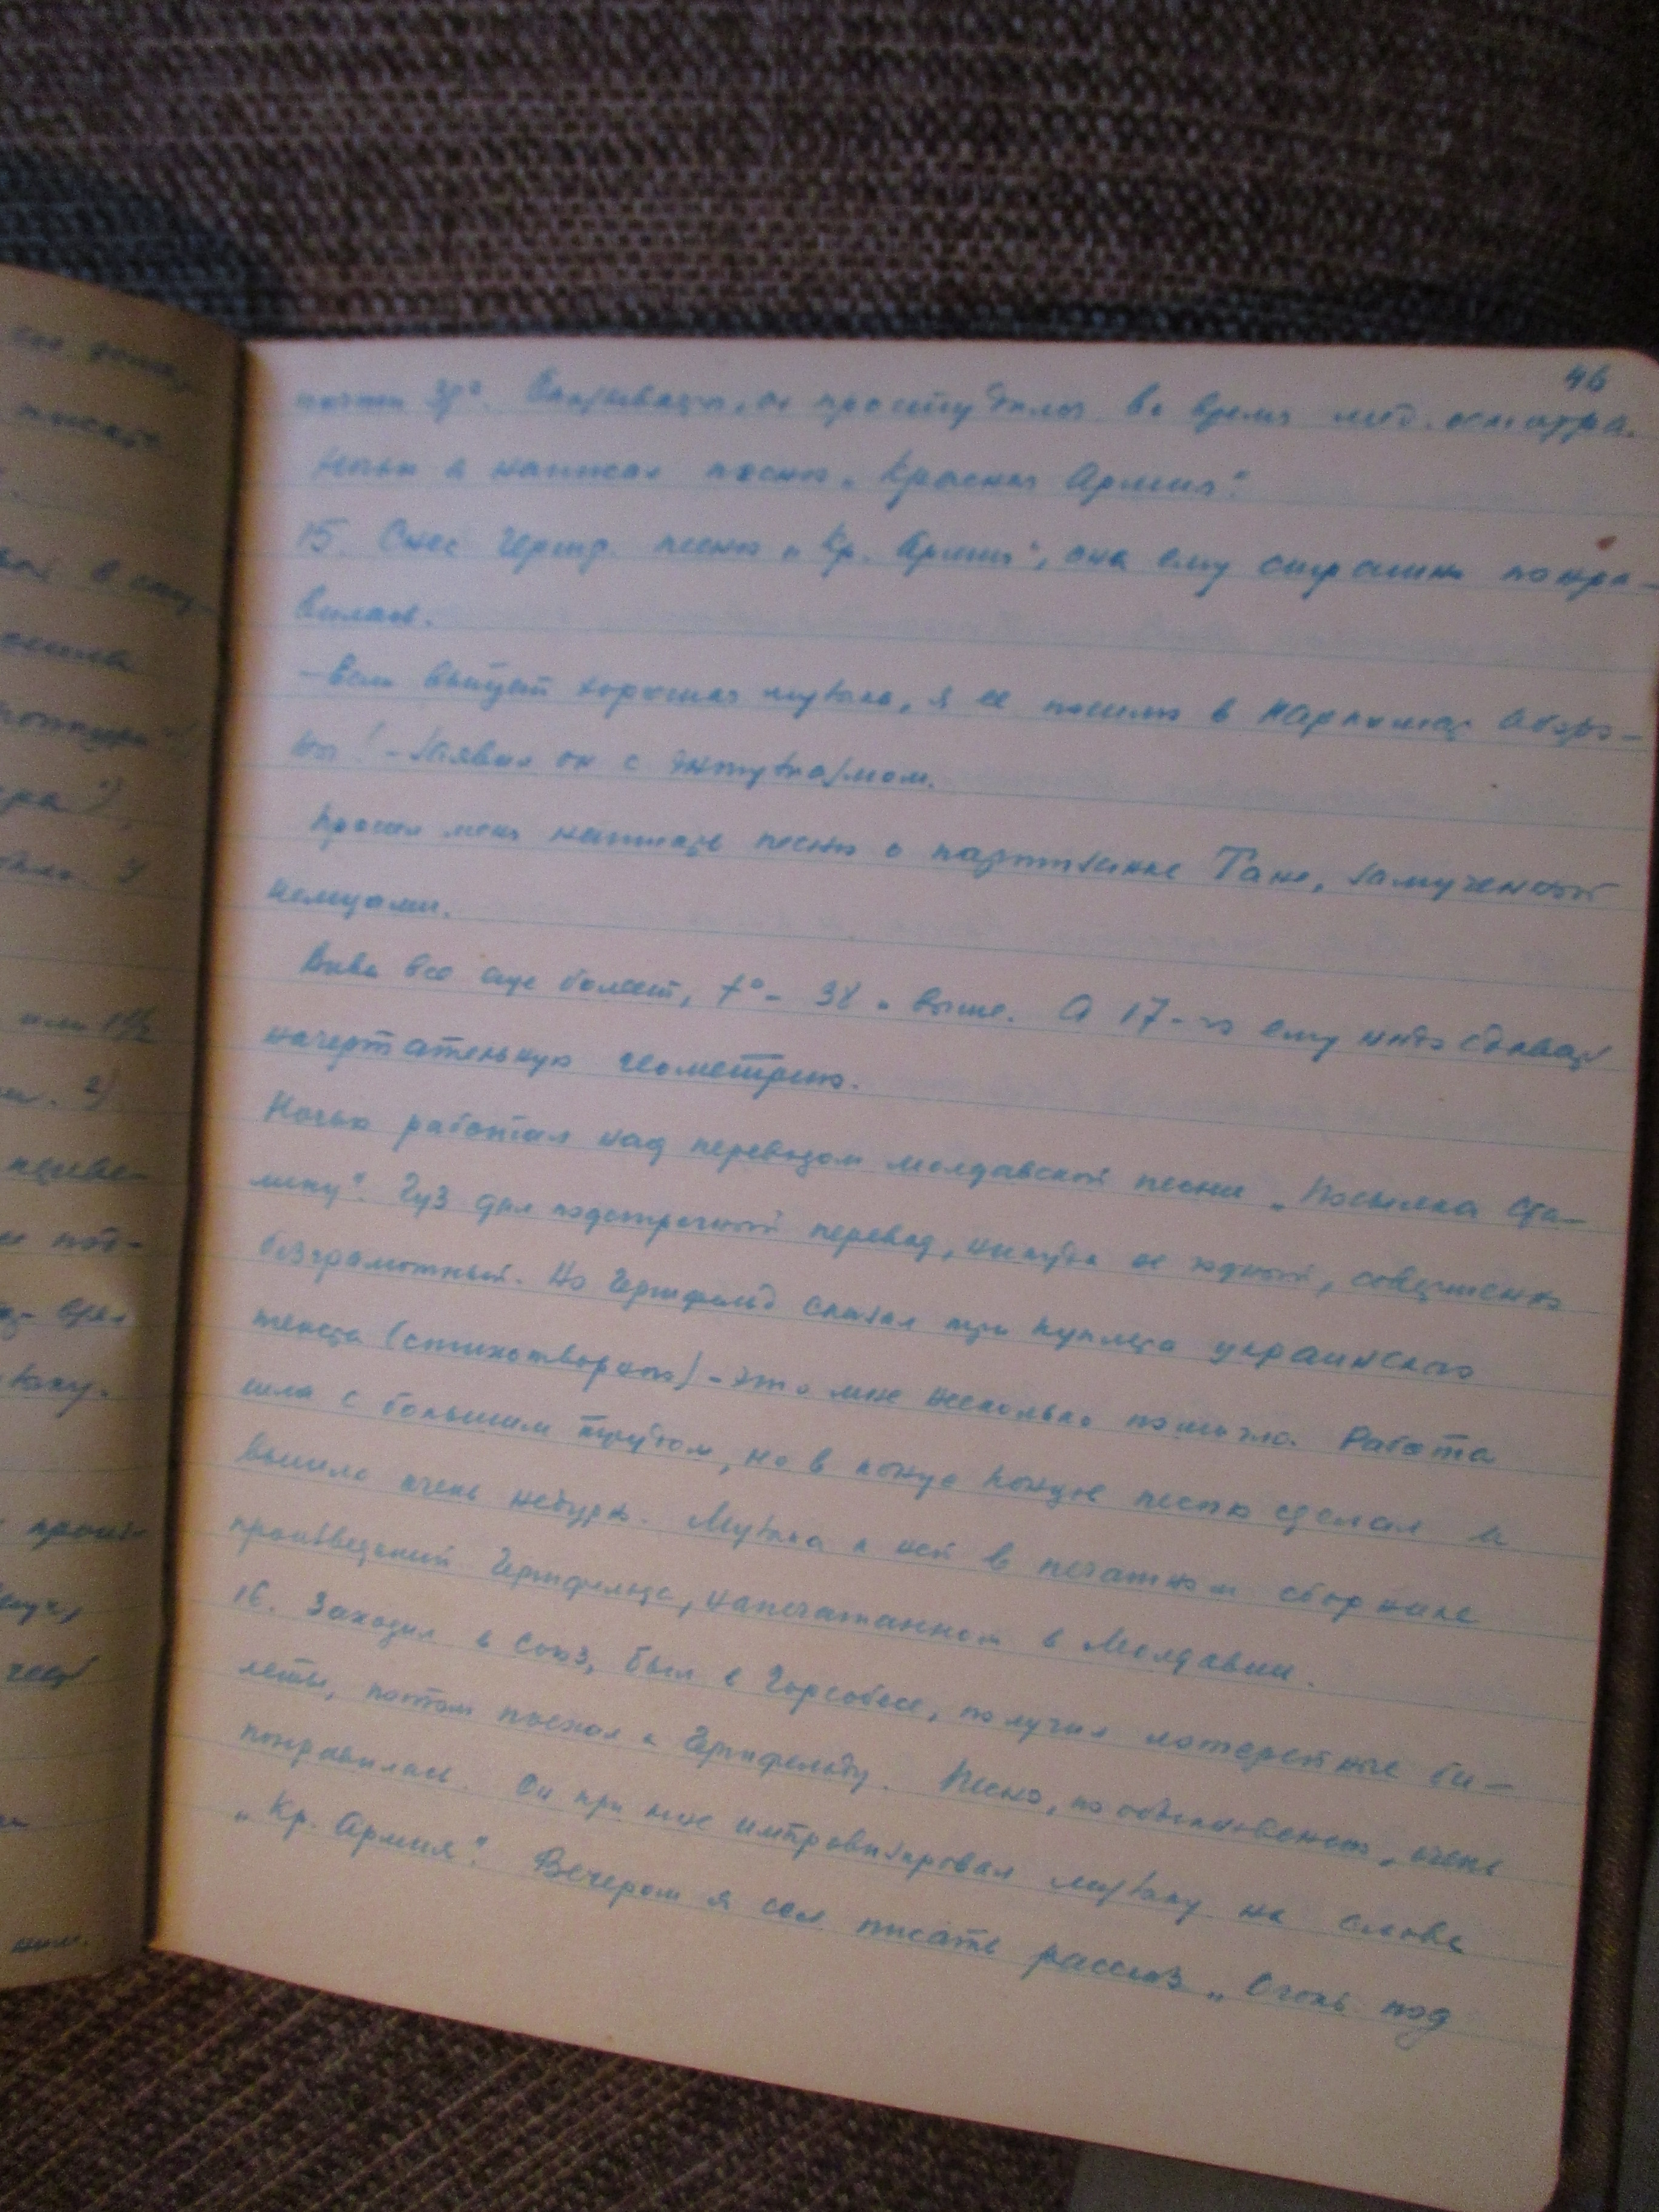 46
почти 39°. Оказывается, он простудился во время мед. осмотра.
Ночью я написал песню „Красная Армия“.
15. Снес Гершф. песню „Кр. Армия“, она ему страшно понра-
вилась.
— Если выйдет хорошая музыка, я ее пошлю в Наркомат Оборо-
ны! – заявил он с энтузиазмом.
Просил меня написать песню о партизанке Тане, замученной
немцами.
Вива все еще болеет, t° – 38 и выше. А 17-го ему надо сдавать
начертательную геометрию.
Ночью работал над переводом молдавской песни „Посылка Ста-
лину“. Гуз дал подстрочный перевод, никуда не годный, совершенно
безграмотный. Но Гершфельд списал три куплета украинского
текста (стихотворного) – это мне несколько помогло. Работа
шла с большим трудом, но в конце концов песню сделал и
вышло очень недурно. Музыка к ней в печатном сборнике
произведений Гершфельда, напечатанном в Молдавии.
16. Заходил в Союз, был в Горсобесе, получил лотерейные би-
леты, потом поехал к Гершфельду. Песня, по обыкновению, очень
понравилась. Он при мне импровизировал музыку на слова
„Кр. Армия“. Вечером я сел писать рассказ „Огонь под